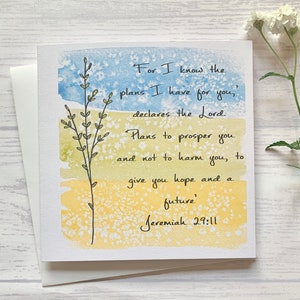 'For I know the
plans I have for you,'
declares the Lord.
'Plans to prosper you
and not to harm you, to
give you hope and a
future'
Jeremiah 29:11